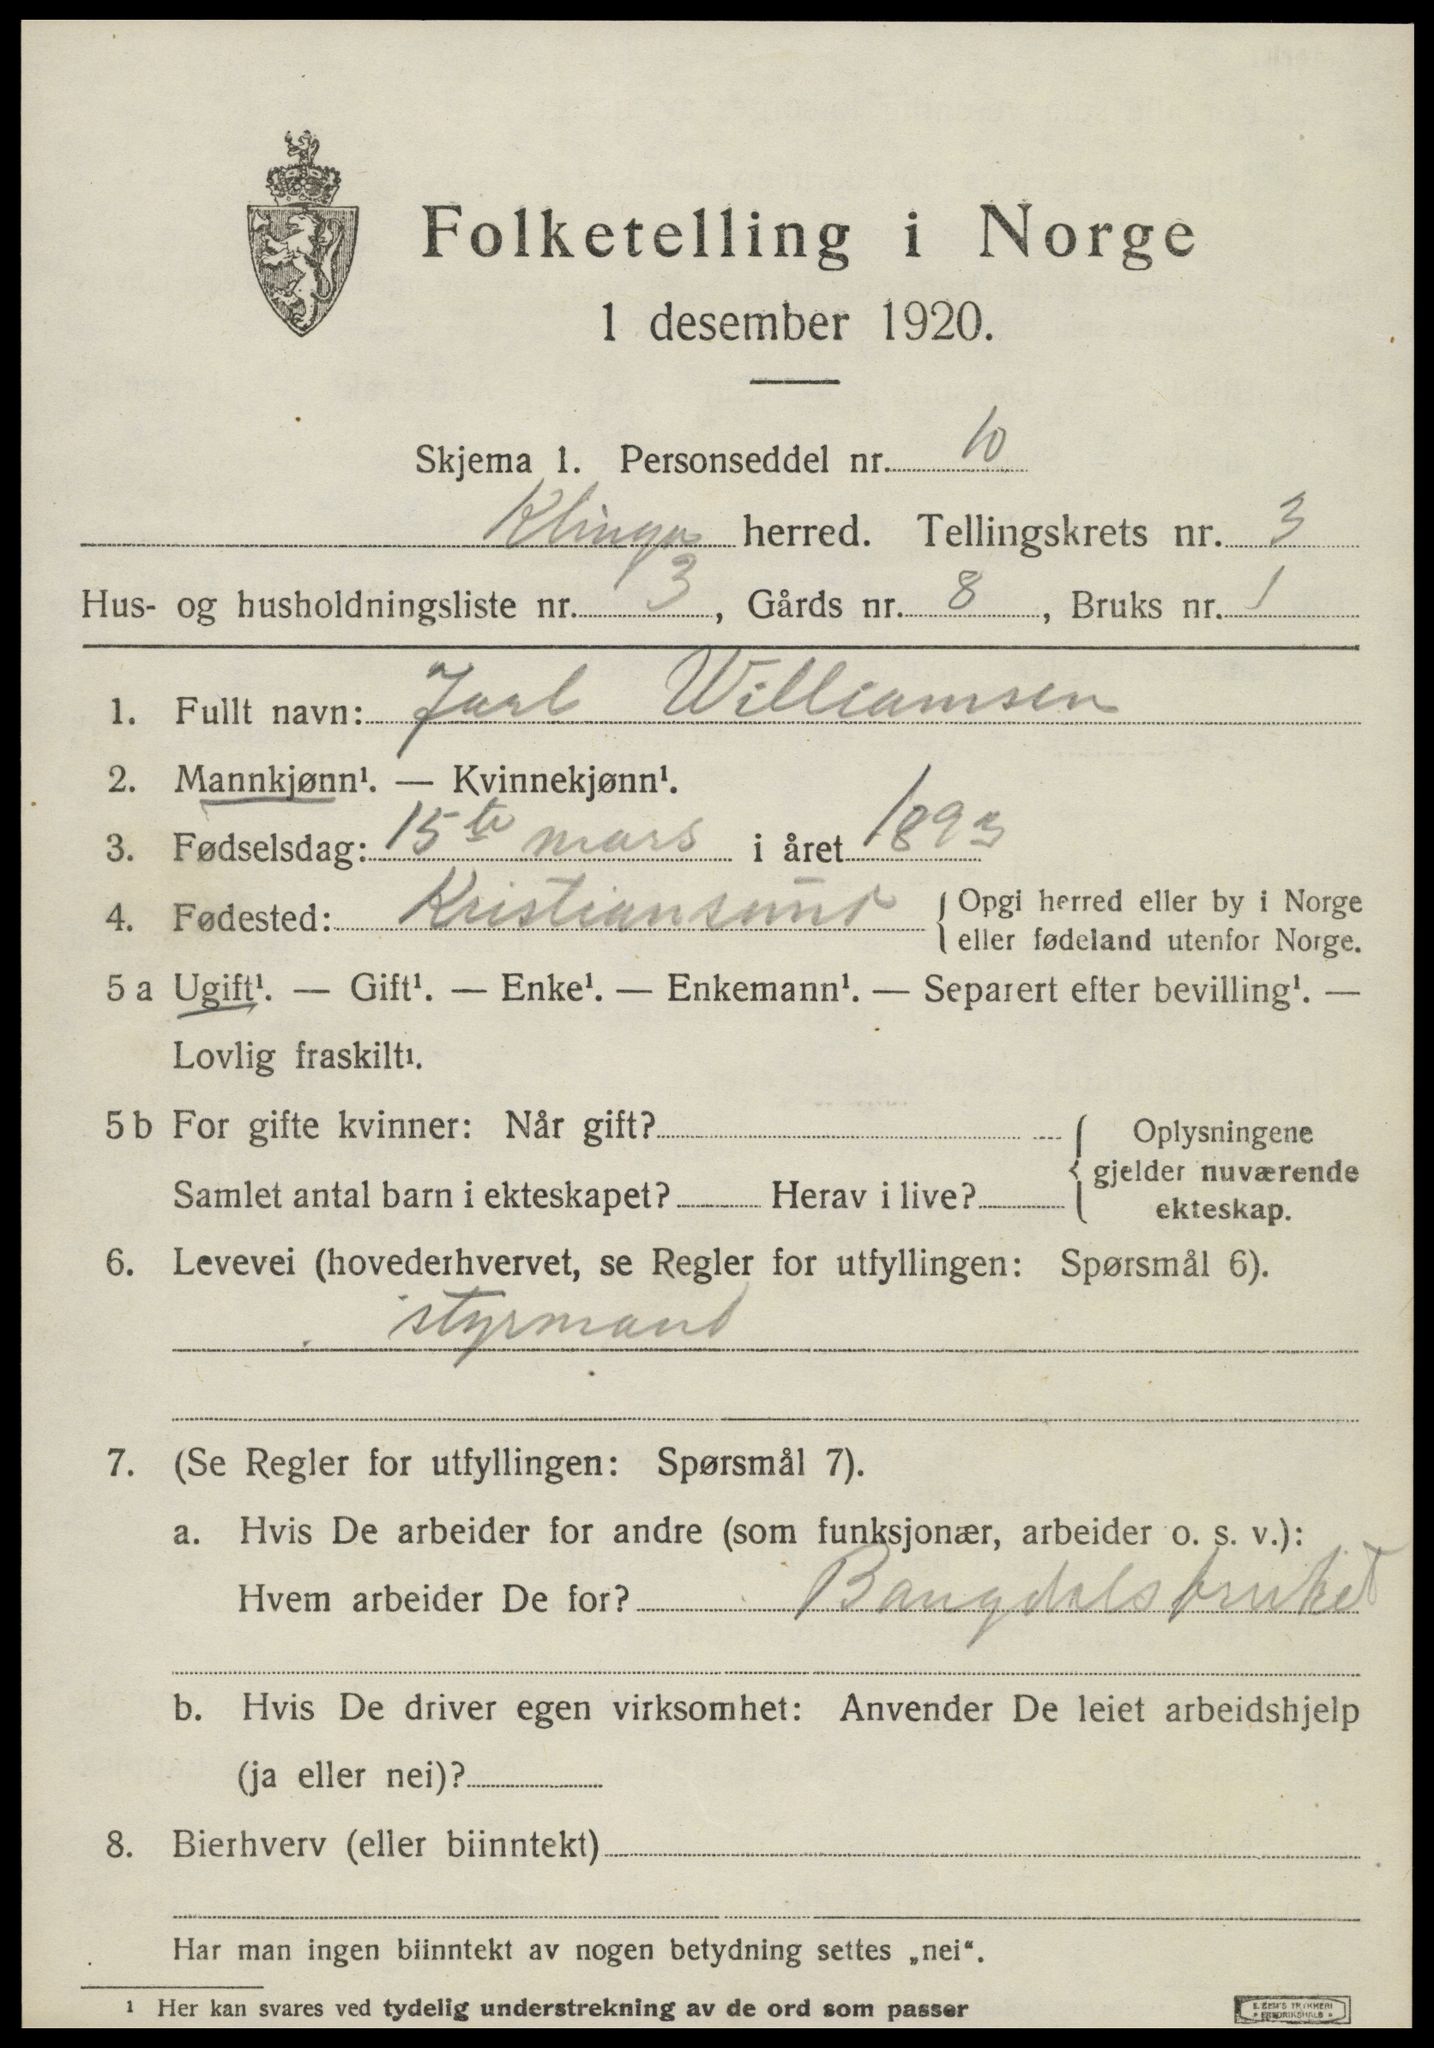 Folketelling i Norge
1 desember 1920.
Skjema 1. Personseddel nr. 10
Klinga herred. Tellingskrets nr. 3
Hus- og husholdningsliste nr. 3, Gårds nr. 8, Bruks nr. 1
1. Fullt navn: Jarl Williamsen
2. Mannkjønn¹. — Kvinnekjønn¹.
3. Fødselsdag: 15te mars i året 1893
4. Fødested: Kristiansund { Opgi herred eller by i Norge
eller fødeland utenfor Norge.
5 a Ugift¹. — Gift¹. — Enke¹. — Enkemann¹. — Separert efter bevilling¹. —
Lovlig fraskilt¹.
5 b For gifte kvinner: Når gift? { Oplysningene
gjelder nuværende
Samlet antal barn i ekteskapet? Herav i live?
ekteskap.
6. Levevei (hovederhvervet, se Regler for utfyllingen: Spørsmål 6).
styrmand
7. (Se Regler for utfyllingen: Spørsmål 7).
a. Hvis De arbeider for andre (som funksjonær, arbeider o. s. v.):
Hvem arbeider De for? Bangdalsbruket
b. Hvis De driver egen virksomhet: Anvender De leiet arbeidshjelp
(ja eller nei)?
8. Bierhverv (eller biinntekt)
Har man ingen biinntekt av nogen betydning settes „nei“.
¹ Her kan svares ved tydelig understrekning av de ord som passer
E. SEM'S TRYKKERI
FREDRIKSHALD